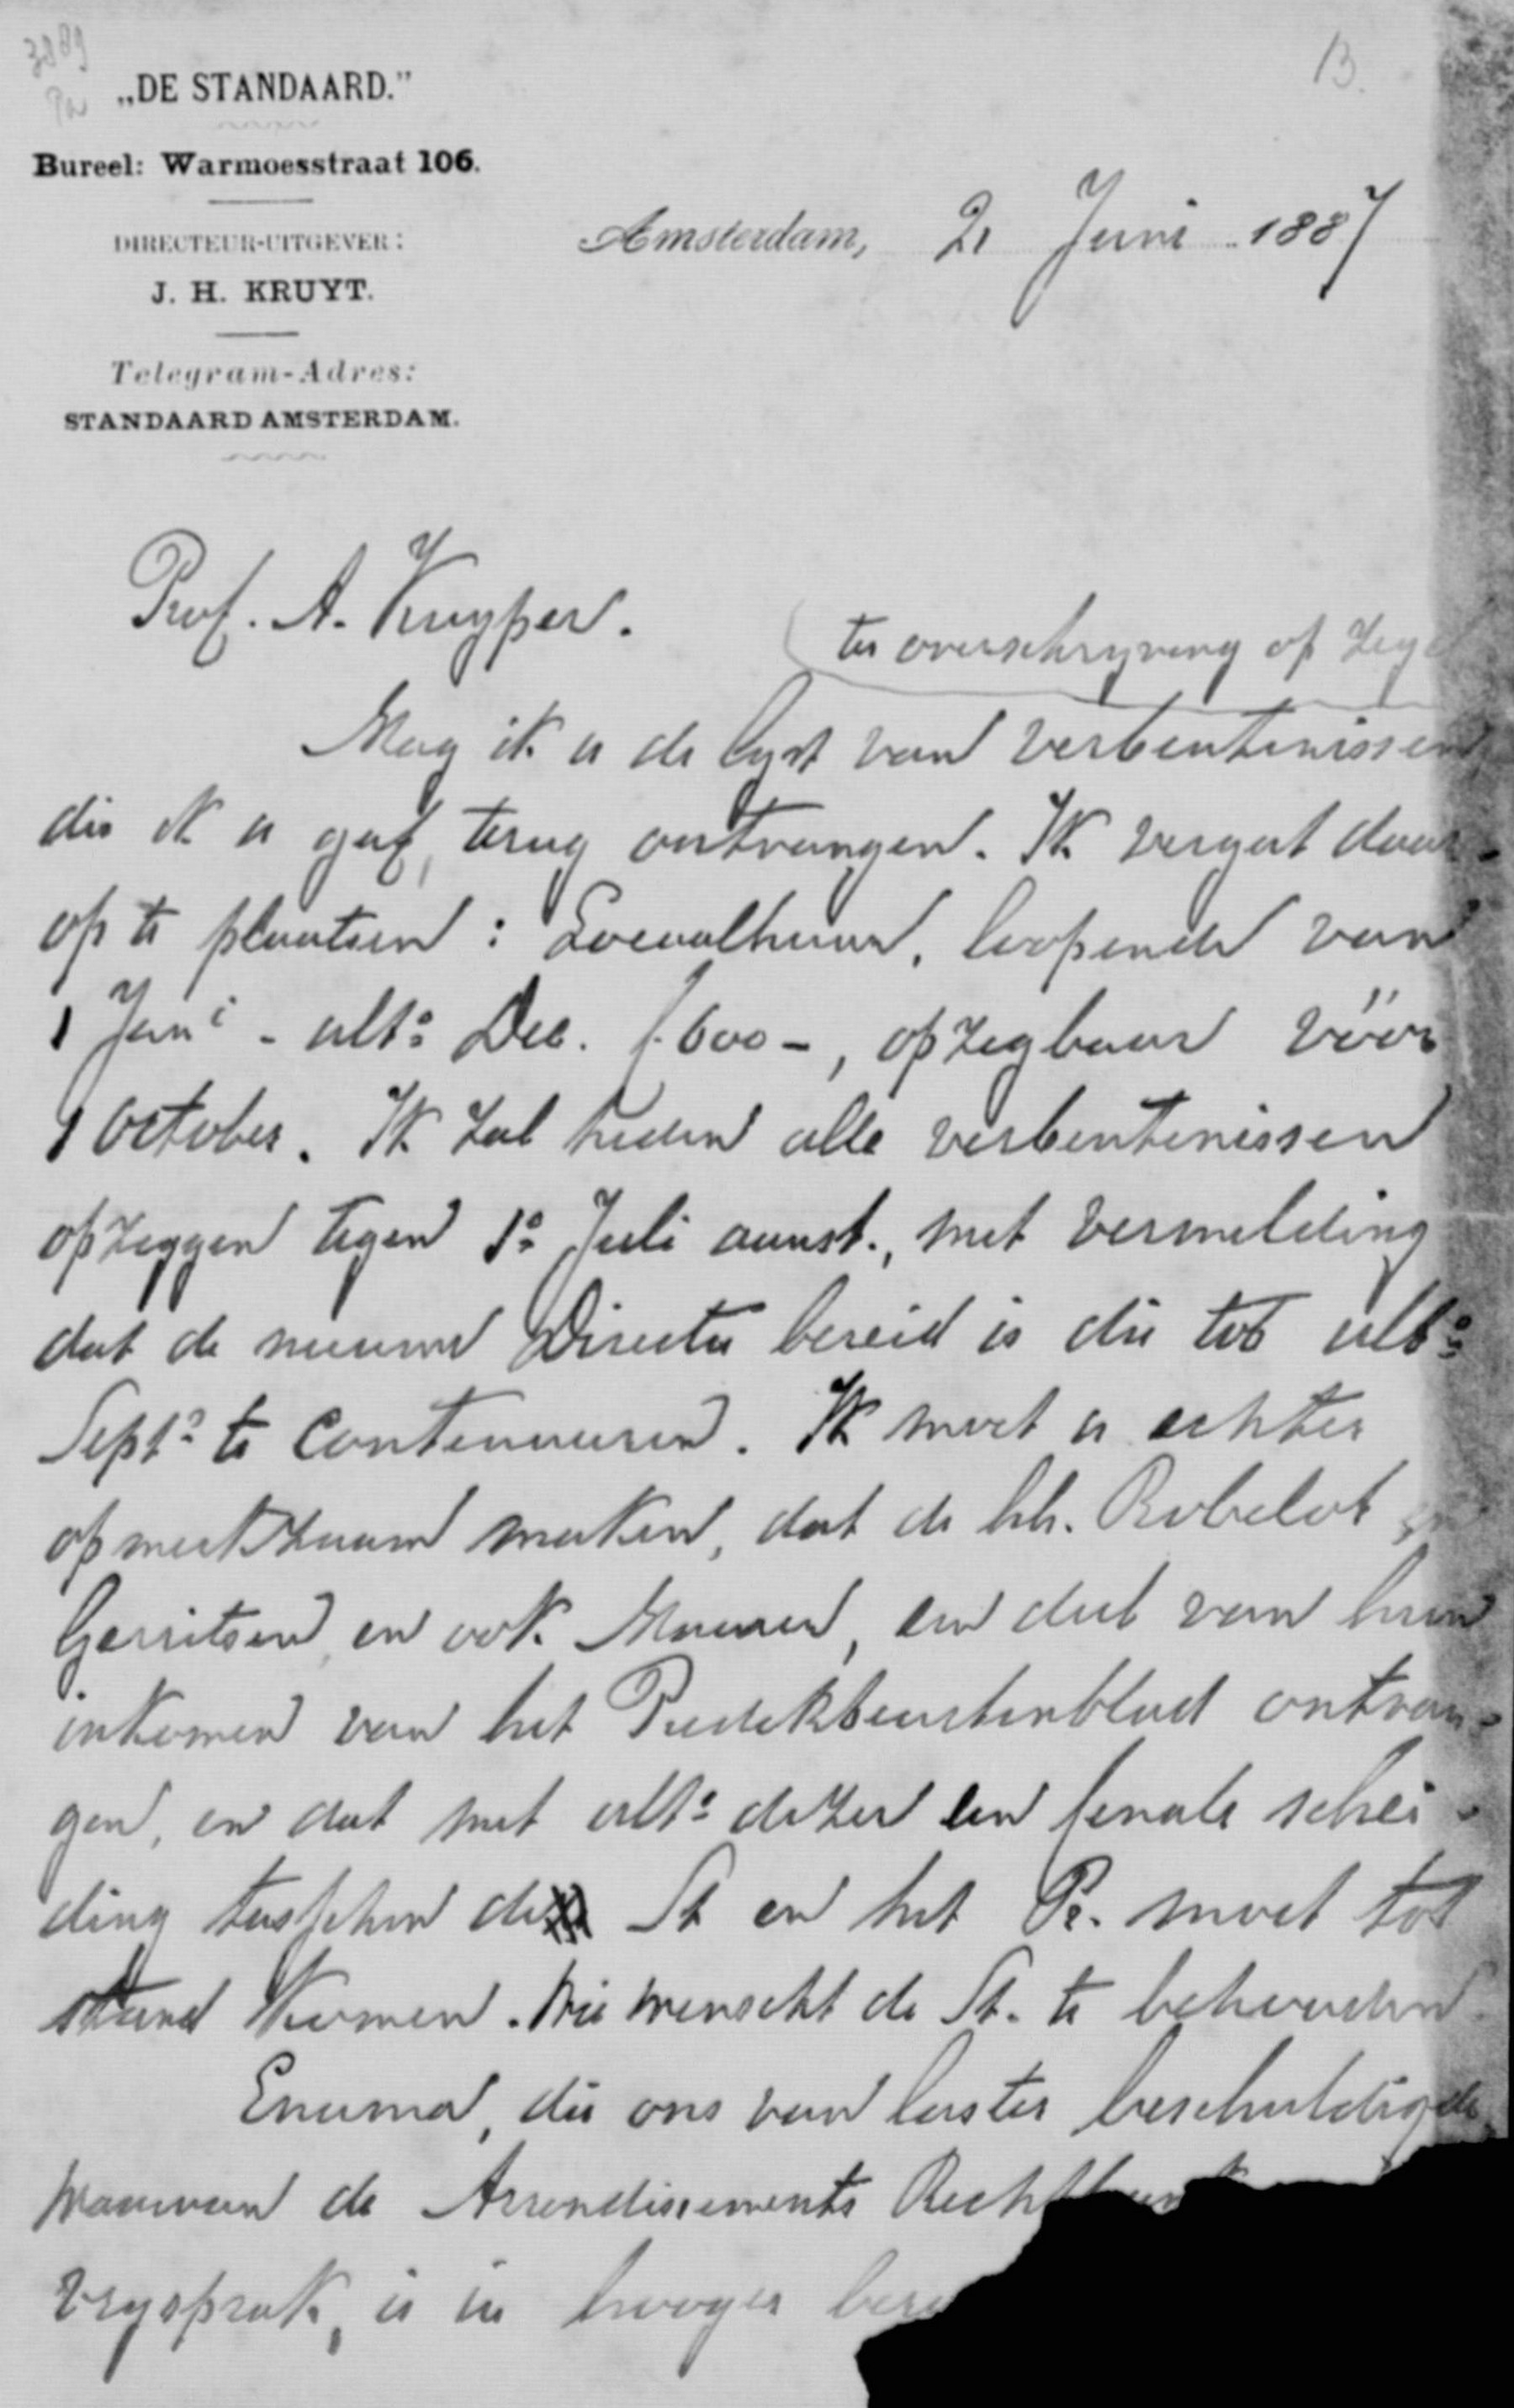 3889
13.
„DE STANDAARD."
Bureel: Warmoesstraat 106.
DIRECTEUR-UITGEVER:
J. H. KRUYT.
Telegram-Adres:
STANDAARD AMSTERDAM.
Amsterdam, 21 Juni 1887
Prof. A. Kuyper.
ter overschryving op
Mag ik u de lyst van verbentenissen
die ik u gaf, terug ontvangen. Ik vergat daar-
op te plaatsen: Locaalhuur, loopende van
1 Juni - ulto Dec. f. 600 -, opzegbaar vóór
1 October. Ik zal heden alle verbentenissen
opzeggen tegen 1o Juli aanst., met vermelding
dat de nieuwe Directie bereid is die tot ulto
Septo te continueeren. Ik moet u echter
opmerkzaam maken, dat de hh. Robelot en
Gerritsen, en ook, een deel van hun
inkomen van het Predikbeurtenblad ontvan-
gen, en dat met ulto dezer een finale schei-
ding tusschen de St en het Pr. moet tot
stand komen. Wie wenscht de St. te behouden
Enuma, die ons van laster beschuldigde,
waarvan de Arrondissements
vrysprak, is in hooger